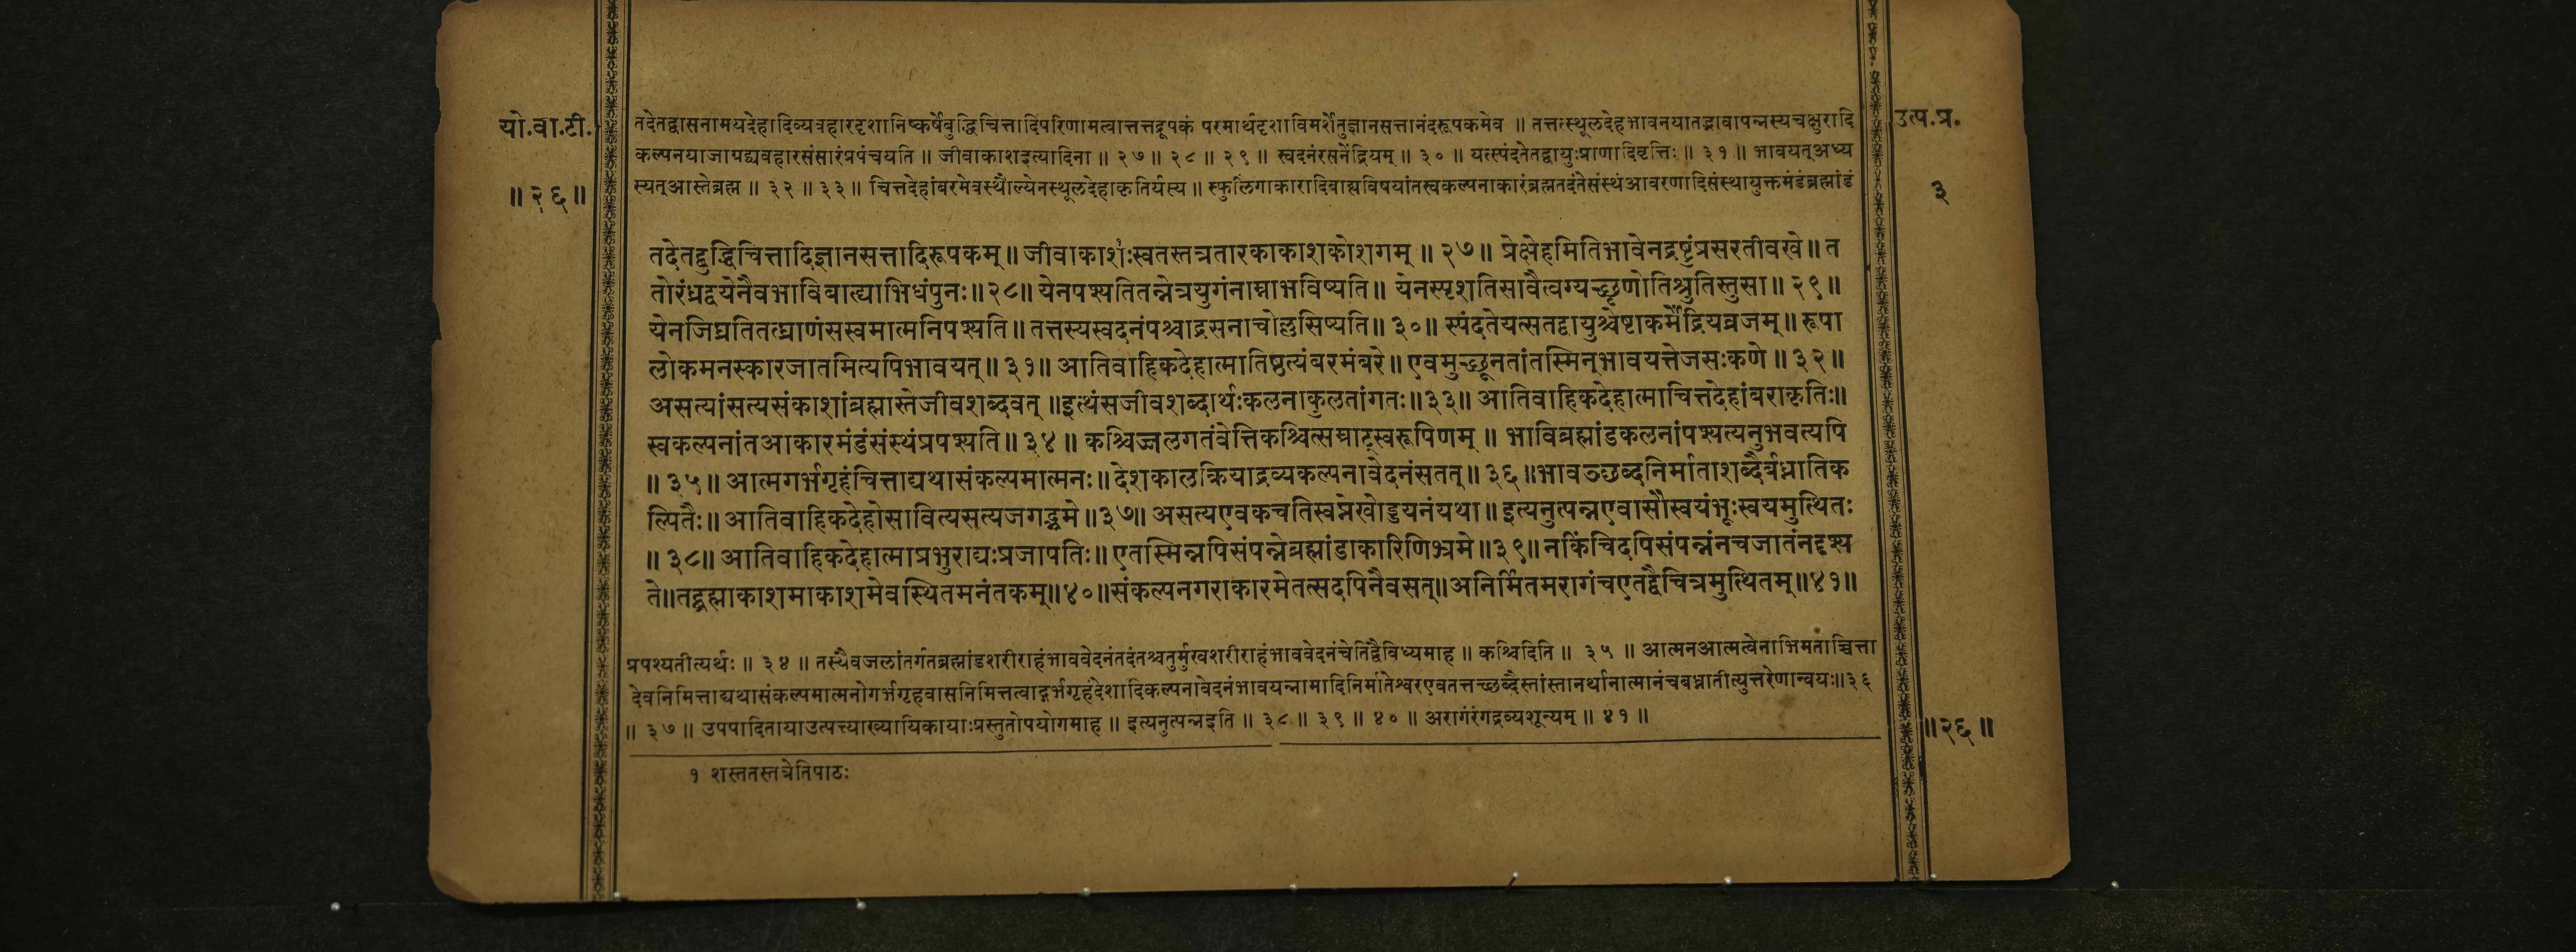 यो.वा.टी.
॥२६॥
उत्प.प्र.
३
तदेतद्वासनामयदेहादिव्यवहारदृशानिष्कर्षेबुद्धिचित्तादिपरिणामत्वात्तत्तद्रूपकं परमार्थदृशाविमर्शेतुज्ञानसत्तानंदरूपकमेव ॥ तत्तत्स्थूलदेहभावनयातद्भावापन्नस्यचक्षुरादि
कल्पनयाजाग्रद्व्यवहारसंसारंप्रपंचयति ॥ जीवाकाशइत्यादिना ॥ २७ ॥ २८ ॥ २९ ॥ स्वदनंरसनेंद्रियम् ॥ ३० ॥ यत्स्पंदतेतद्वायुःप्राणादिवृत्तिः ॥ ३१ ॥ भावयत्अध्य
स्यत्आस्तेब्रह्म ॥ ३२ ॥ ३३ ॥ चित्तदेहांबरमेवस्थौल्येनस्थूलदेहाकृतिर्यस्य ॥ स्फुलिंगाकारादिबाह्यविषयांतस्वकल्पनाकारंब्रह्मतदंतेसंस्थंआवरणादिसंस्थायुक्तमंडंब्रह्मांडं
तदेतद्बुद्धिचित्तादिज्ञानसत्तादिरूपकम् ॥ जीवाकाशः१स्वतस्तत्रतारकाकाशकोशगम् ॥ २७ ॥ प्रेक्षेहमितिभावेनद्रष्टुंप्रसरतीवखे ॥ त
तोरंध्रद्वयेनैवभाविबात्द्याभिधंपुनः ॥ २८ ॥ येनपश्यतितन्नेत्रयुगंनाम्नाभविष्यति ॥ येनस्पृशतिसावैत्वग्यच्छृणोतिश्रुतिस्तुसा ॥ २९ ॥
येनजिघ्रतितत्घ्राणंसस्वमात्मनिपश्यति ॥ तत्तस्यस्वदनंपश्चाद्रसनाचोल्लसिष्यति ॥ ३० ॥ स्पंदतेयत्सतद्वायुश्चेष्टाकर्मेंद्रियव्रजम् ॥ रूपा
लोकमनस्कारजातमित्यपिभावयत् ॥ ३१ ॥ आतिवाहिकदेहात्मातिष्ठत्यंबरमंबरे ॥ एवमुच्छूनतांतस्मिन्भावयत्तेजसःकणे ॥ ३२ ॥
असत्यांसत्यसंकाशांब्रह्मास्तेजीवशब्दवत् ॥ इत्थंसजीवशब्दार्थःकलनाकुलतांगतः ॥ ३३ ॥ आतिवाहिकदेहात्माचित्तदेहांबराकृतिः ॥
स्वकल्पनांतआकारमंडंसंस्थंप्रपश्यति ॥ ३४ ॥ कश्चिज्जलगतंवेत्तिकश्चित्सम्राट्स्वरूपिणम् ॥ भाविब्रह्मांडकलनांपश्यत्यनुभवत्यपि
॥ ३५ ॥ आत्मगर्भगृहंचित्ताद्यथासंकल्पमात्मनः ॥ देशकालक्रियाद्रव्यकल्पनावेदनंसतत् ॥ ३६ ॥ भावञ्छब्दनिर्माताशब्दैर्बध्नातिक
ल्पितैः ॥ आतिवाहिकदेहोसावित्यसत्यजगद्भ्रमे ॥ ३७ ॥ असत्यएवकचतिस्वप्नेखोड्डयनंयथा ॥ इत्यनुत्पन्नएवासौस्वयंभूःस्वयमुत्थितः
॥ ३८ ॥ आतिवाहिकदेहात्माप्रभुराद्यःप्रजापतिः ॥ एतस्मिन्नपिसंपन्नेब्रह्मांडाकारिणिभ्रमे ॥ ३९ ॥ नकिंचिदपिसंपन्नंनचजातंनदृश्य
ते ॥ तद्ब्रह्माकाशमाकाशमेवस्थितमनंतकम् ॥ ४० ॥ संकल्पनगराकारमेतत्सदपिनैवसत् ॥ अनिर्मितमरागंचएतद्वैचित्रमुत्थितम् ॥ ४१ ॥
प्रपश्यतीत्यर्थः ॥ ३४ ॥ तस्यैवजलांतर्गतब्रह्मांडशरीराहंभाववेदनंतदंतश्चतुर्मुखशरीराहंभाववेदनंचेतिद्वैविध्यमाह ॥ कश्चिदिति ॥ ३५ ॥ आत्मनआत्मत्वेनाभिमताच्चित्ता
देवनिमित्ताद्यथासंकल्पमात्मनोगर्भगृहवासनिमित्तत्वाद्गर्भगृहंदेशादिकल्पनावेदनंभावयन्नामादिनिर्मातेश्वरएवतत्तच्छब्दैस्तांस्तानर्थानात्मानंचबध्नातीत्युत्तरेणान्वयः ॥ ३६
॥ ३७ ॥ उपपादितायाउत्पत्त्याख्यायिकायाःप्रस्तुतोपयोगमाह ॥ इत्यनुत्पन्नइति ॥ ३८ ॥ ३९ ॥ ४० ॥ अरागंरंगद्रव्यशून्यम् ॥ ४१ ॥
॥२६॥
१ शस्ततस्तत्रेतिपाठः